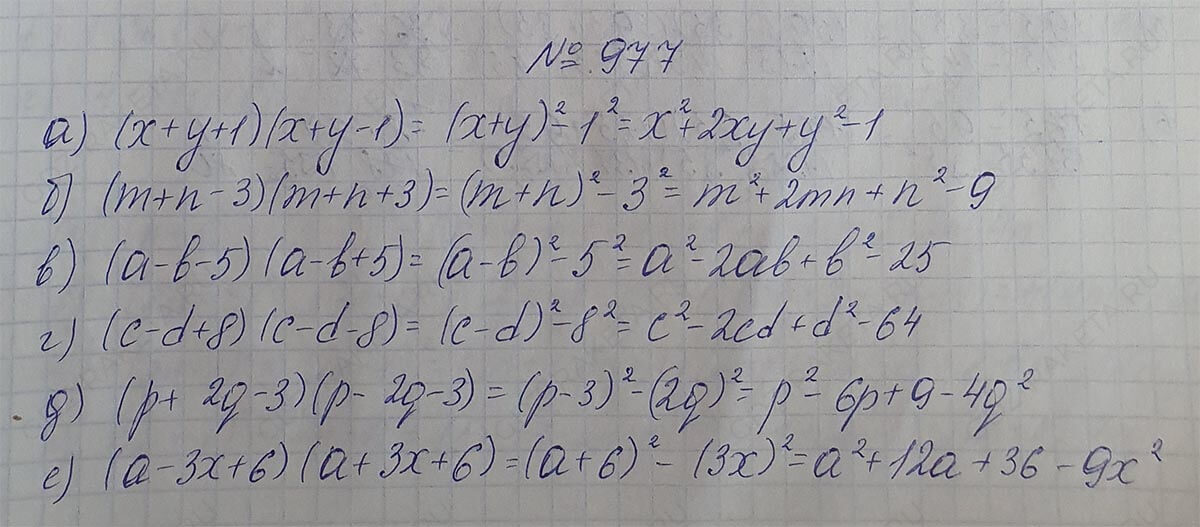 № 977
а) (x+y+1)(x+y-1)= (x+y)²-1²= x²+2xy+y²-1
б) (m+n-3)(m+n+3)=(m+n)²-3²= m²+2mn+n²-9
в) (a-b-5)(a-b+5)= (a-b)²-5²= a²-2ab+b²-25
г) (c-d+8)(c-d-8)= (c-d)²-8²= c²-2cd+d²-64
д) (p+ 2q-3)(p- 2q-3)= (p-3)²-(2q)²= p²-6p+9-4q²
е) (a-3x+6)(a+3x+6)=(a+6)²- (3x)²= a²+12a+36-9x²